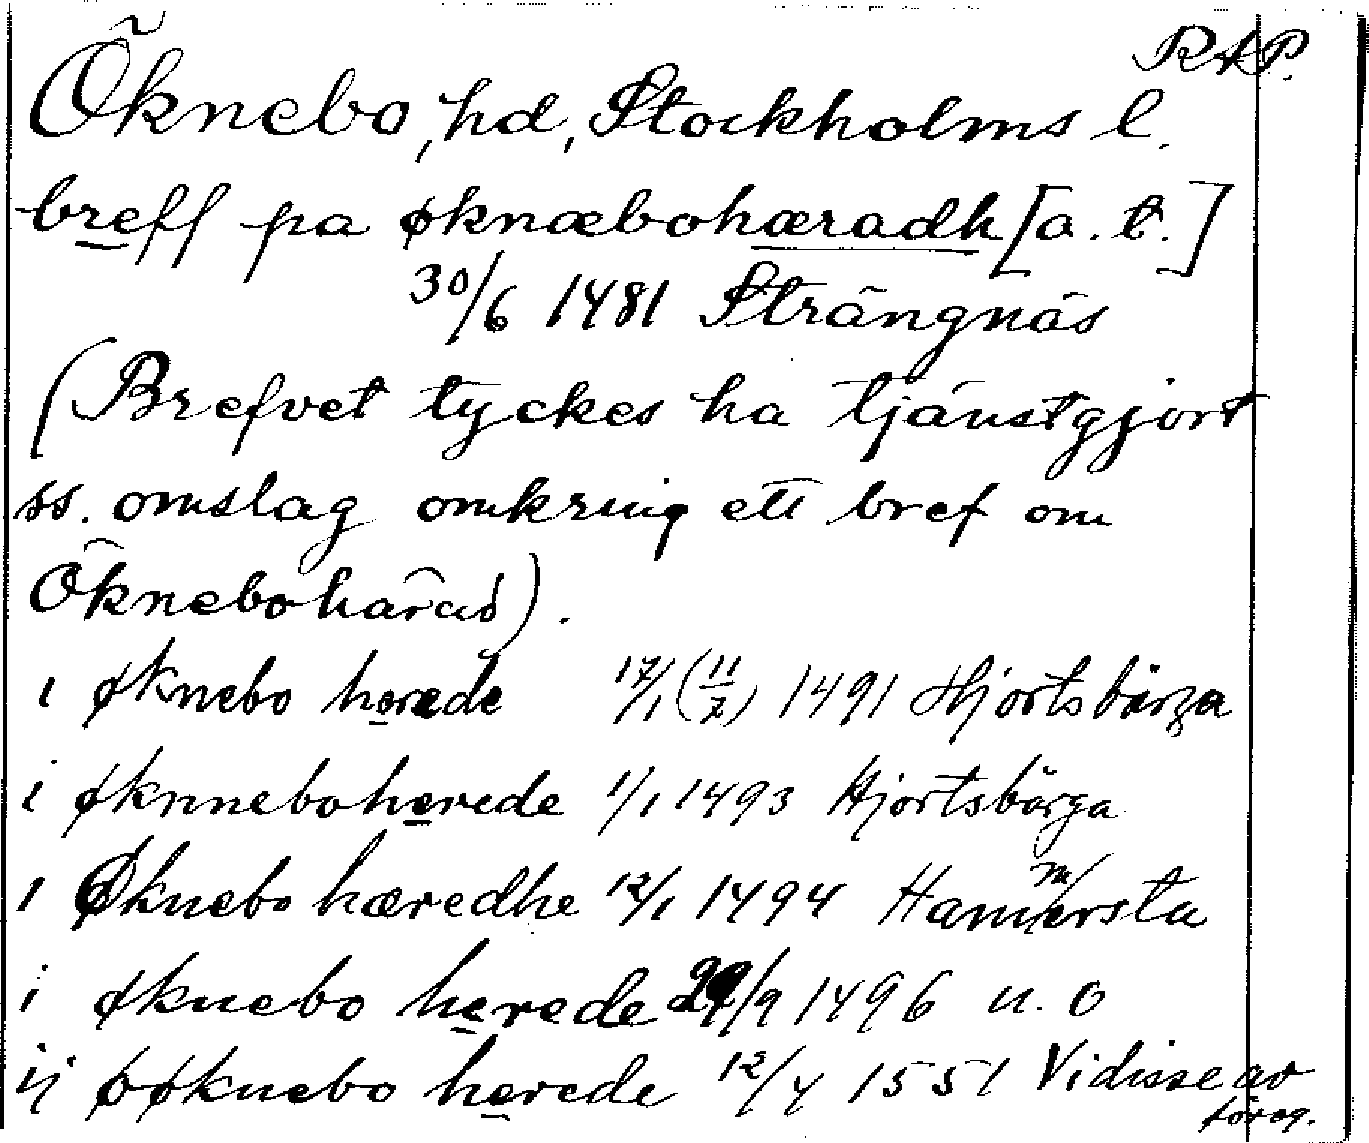 RAP.
Öknebo, hd, Stockholms l.
breff pa øknæbohæradh [a. t.]
30/6 1481 Strängnäs
(Brefvet tyckes ha tjänstgjort
ss. omslag omkring ett bref om
Öknebo härad).
i øknebo herede 17/1 (11/7) 1491 Hjortsbärga
i øknneboherede 1/1 1493 Hjortsbärga
i Øknebo hæredhe 12/1 1494 Hammersta
i øknebo herede 29/9 1496 u. o
ij øøknebo herede 12/4 1551 Vidisse av
föreg.